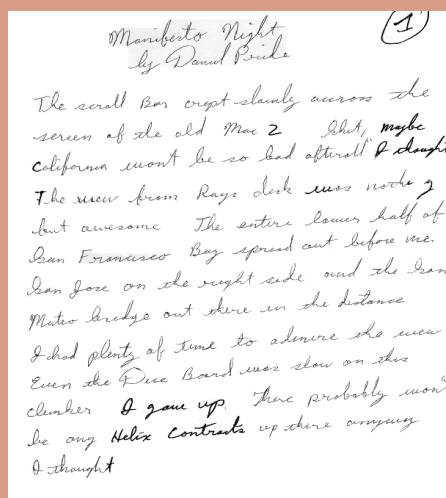 Manifesto Night
by Daniel Pride
1
The scroll Bar crept slowly across the
screen of the old Mac 2 Shit, maybe
California wont be so bad afterall" I thought
The view from Rays desk was nothing
but awesome The entire lower half of
San Francisco Bay spread out before me.
San Jose on the right side and the San
Mateo bridge out there in the distance
I had plenty of time to admire the view
Even the Dice Board was slow on this
clunker I gave up. There probably won't
be any Helix Contracts up there anyway
I thought